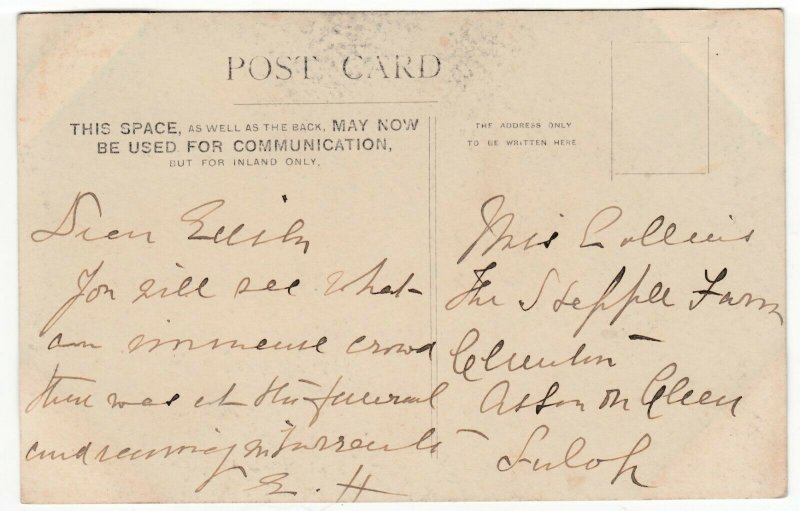 POST CARD
THIS SPACE, AS WELL AS THE BACK, MAY NOW
BE USED FOR COMMUNICATION,
BUT FOR INLAND ONLY.
THE ADDRESS ONLY
TO BE WRITTEN HERE
Dear
You will see what
an immense crowd
there was at the funeral
and raining in torrents
E. H
Miss Collins
The Stepple Farm
Clunton
Aston on Clun
Salop